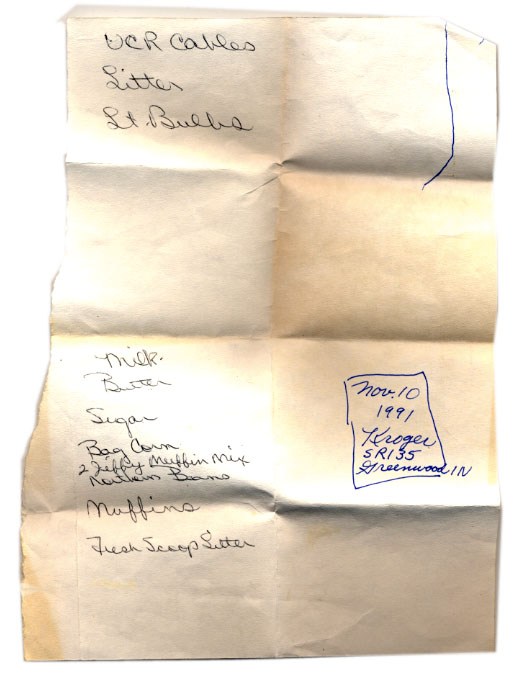 VCR Cables
Litter
Lt. Bulbs
Milk
Butter
Sugar
Bag Corn
2 Jiffy Muffin Mix
Northern Beans
Muffins
Fresh Scoop Litter
Nov. 10
1991
Kroger
SR135
Greenwood IN